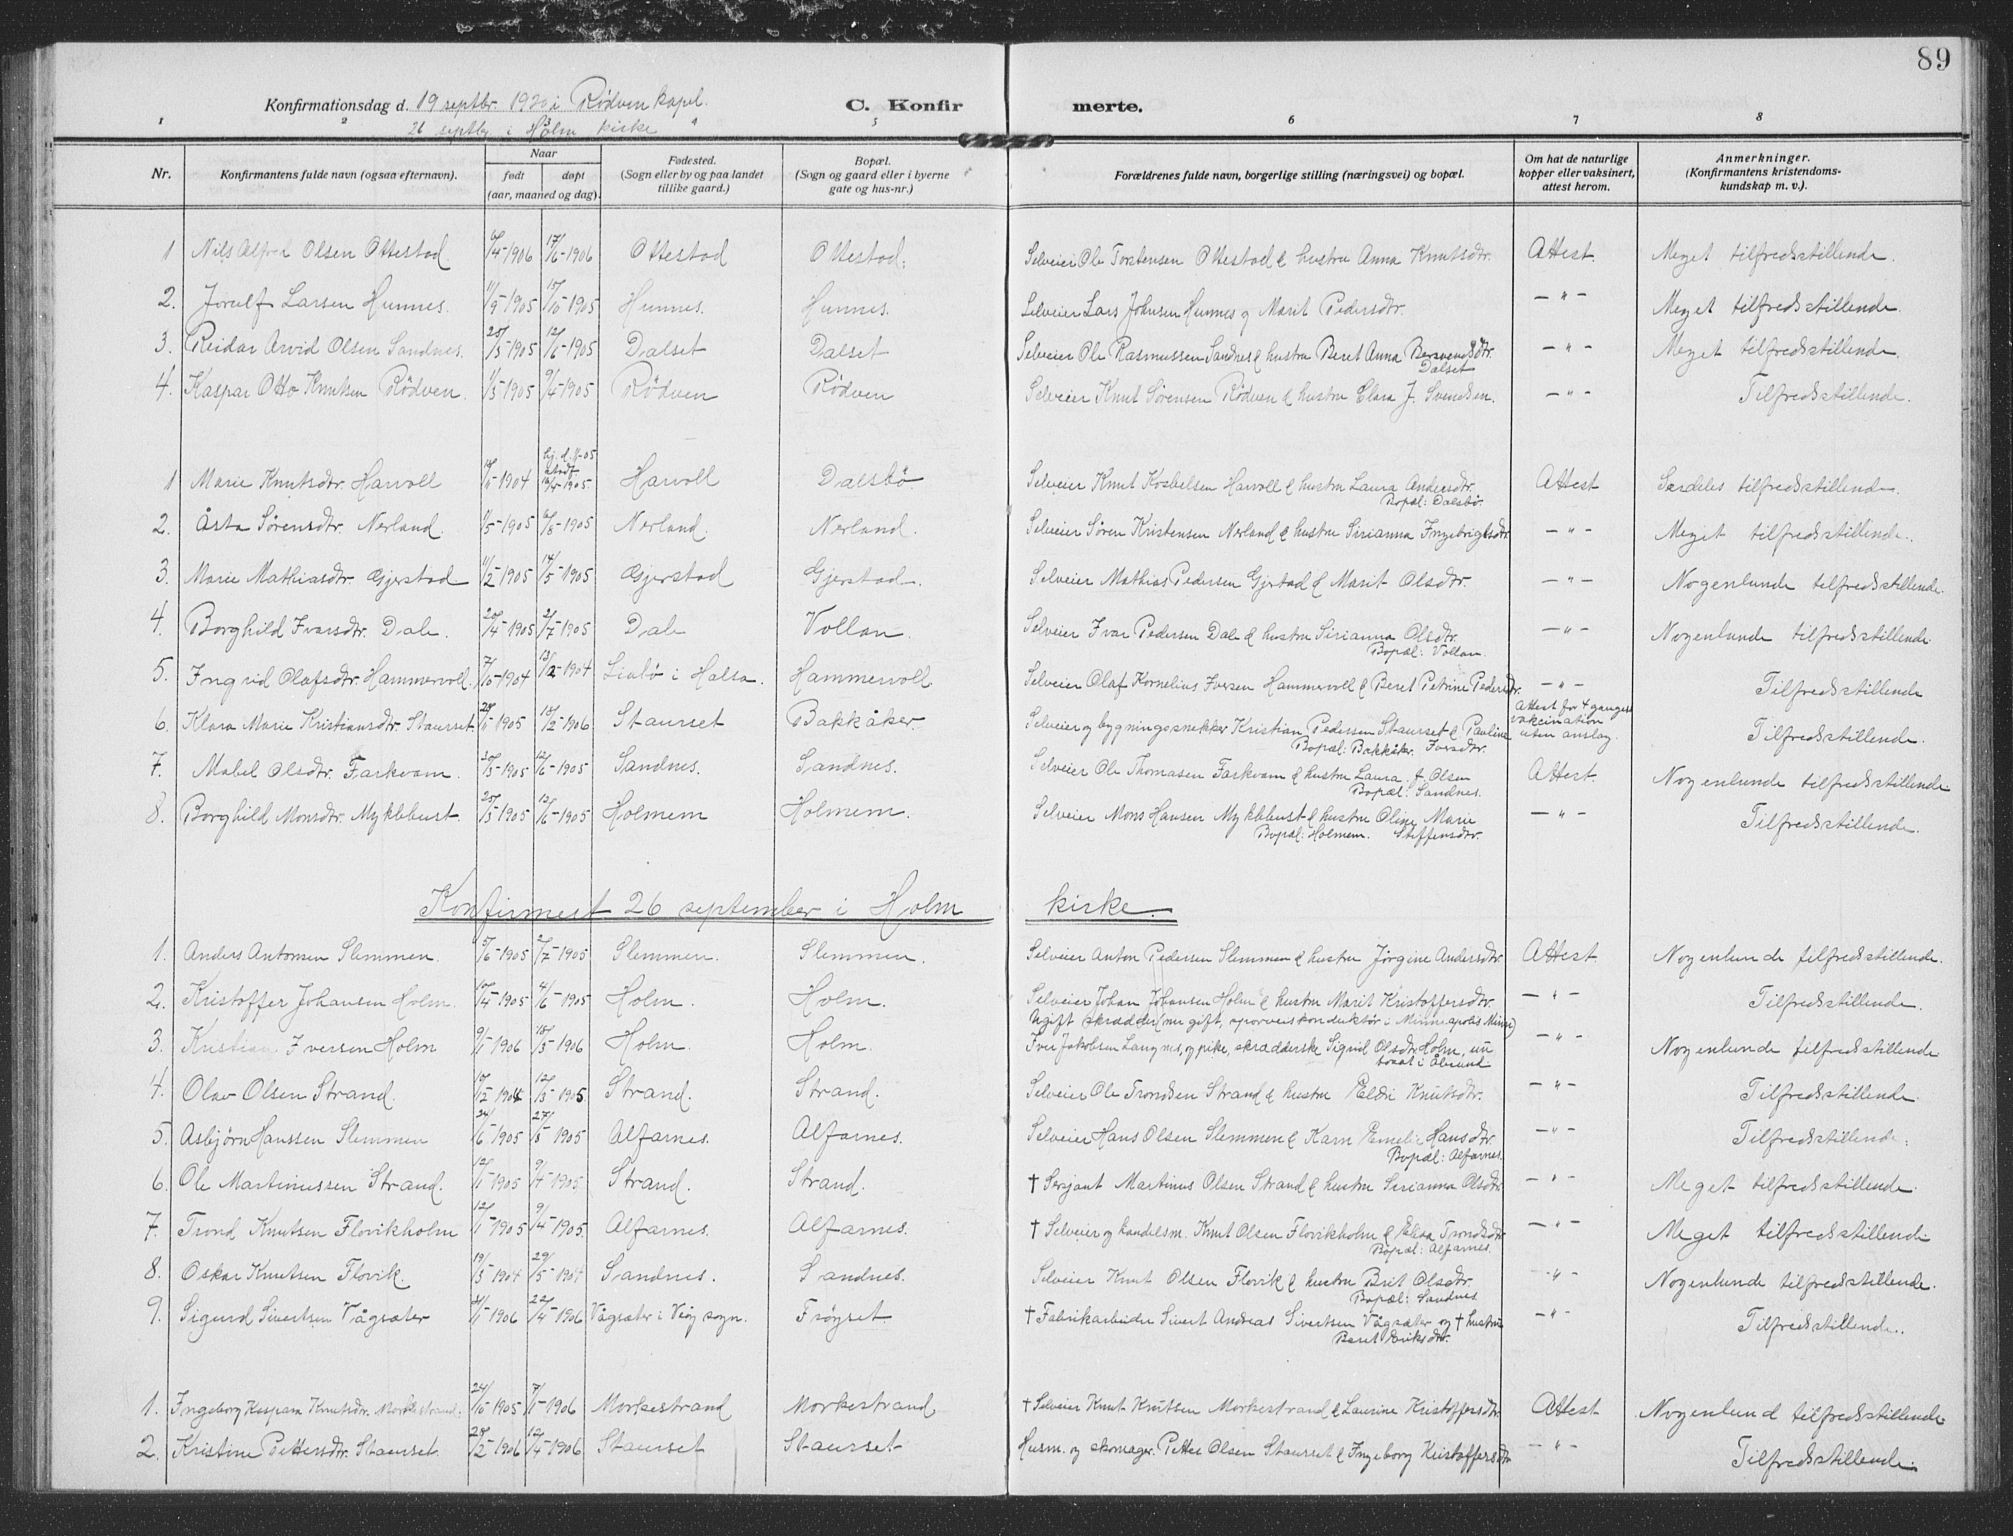 89
Konfirmationsdag d. 19 septbr. 1920 i Rødven kapel. C. Konfirmerte.
26 septbr. i Holm kirke
1 2 3 4 5 6 7 8
Nr. Konfirmantens fulde navn (ogsaa efternavn). Naar født døpt (aar, maaned og dag). Fødested. (Sogn eller by og paa landet tillike gaard.) Bopæl. (Sogn og gaard eller i byerne gate og hus-nr.) Forældrenes fulde navn, borgerlige stilling (næringsvei) og bopæl. Om hat de naturlige kopper eller vaksinert, attest herom. Anmerkninger. (Konfirmantens kristendomskundskap m. v.).
1 Nils Alfred Olsen Ottestad. 6/4-1906 17/6-1906 Ottestad Ottestad. Selveier Ole Torstensen Ottestad & hustru Anna Knutsdtr. Attest. Meget tilfredsstillende.
2. Jorulf Larsen Hunnes. 11/9-1905 15/10-1905 Hunnes. Hunnes. Selveier Lars Johnsen Hunnes og Marit Pedersdtr. —"— Meget tilfredsstillende
3. Reidar Arvid Olsen Sandnes. 25/3-1905 12/6-1905 Dalset Dalset Selveier Ole Rasmussen Sandnes & hustru Beret Anna Bersvendsdtr. Dalset —"— Meget tilfredsstillende.
4. Kaspar Otto Knutsen Rødven. 1/3-1905 9/4-1905 Rødven Rødven Selveier Knut Sørensen Rødven & hustru Clara J. Svendsen. —"— Tilfredsstillende.
1 Marie Knutsdtr. Harvoll 1904 1905 Harvoll Dalsbø Selveier Knut Harvoll & hustru Laura Andersdtr. Bopæl: Dalsbø. Attest Særdeles tilfredsstillende.
2. Åsta Sørensdtr. Nerland. 11/5-1905 6/8-1905 Nerland. Nerland. Selveier Søren Kristensen Nerland & hustru Sirianna Ingebrigtsdtr —"— Meget tilfredsstillende.
3. Marie Mathiasdtr. Gjerstad 11/2-1905 14/5-1905 Gjerstad Gjerstad. Selveier Mathias Pedersen Gjerstad & Marit Olsdtr. —"— Nogenlunde tilfredsstillende.
4. Borghild Ivarsdtr. Dale. 20/4-1905 2/7-1905 Dale Vollan. Selveier Ivar Pedersen Dale & hustru Sirianna Olsdtr. Bopæl: Vollan. —"— Nogenlunde tilfredsstillende.
5. Ingrid Olafsdtr. Hammervoll. 7/10-1904 13/12-1904 Liabø i Halsa. Hammervoll. Selveier Olaf Kornelius Iversen Hammervoll & Beret Petrine Pedersdtr. —"— Tilfredsstillende
6. Klara Marie Kristiansdtr. Staurset. 1905 18/2-1906 Staurset Bakkåker. Selveier og bygningssnekker Kristian Pedersen Staurset & Pauline Ivarsdtr. Bopæl: Bakkåker. Attest for 4 gangers vakcination uten anslag. Tilfredsstillende.
7. Mabel Olsdtr. Farkvam. 20/3-1905 12/6-1905 Sandnes. Sandnes. Selveier Ole Thomasen Farkvam & hustru Laura J. Olsen Bopæl: Sandnes. Attest. Nogenlunde tilfredsstillende.
8. Borghild Monsdtr. Myklebust. 25/3-1905 12/6-1905 Holmem Holmem. Selveier Mons Hansen Myklebust & hustru Oline Marie Steffensdtr. Bopæl: Holmem. —"— Tilfredsstillende.
Konfirmert 26 september i Holm kirke.
1. Anders Antonsen Slemmen. 5/6-1905 2/7-1905 Slemmen. Slemmen. Selveier Anton Pedersen Slemmen & hustru Jørgine Andersdtr. Attest. Nogenlunde tilfredsstillende.
2. Kristoffer Johansen Holm. 10/4-1905 4/6-1905 Holm. Holm. Selveier Johan Johansen Holm & hustru Marit Kristoffersdtr. —"— Tilfredsstillende
3. Kristian Iversen Holm 9/1-1906 18/3-1906 Holm. Holm. Ugift skrædder (nu gift, sporveiskonduktør i Minneapolis Minn) Iver Jakobsen Langnes, og pike, skrædderske Sigrid Olsdtr. Holm, nu bosat i Ålesund —"— Nogenlunde tilfredsstillende
4. Olav Olsen Strand. 10/12-1904 12/3-1905. Strand. Strand. Selveier Ole Trondsen Strand & hustru Eldri Knutsdtr. —"— Tilfredsstillende.
5. Asbjørn Hanssen Slemmen 24/6-1905 27/8-1905 Alfarnes. Alfarnes. Selveier Hans Olsen Slemmen & Karn Emelie Hansdtr. Bopæl: Alfarnes. —"— Tilfredsstillende.
6. Ole Martinussen Strand. 12/1-1905 9/4-1905. Strand. Strand. † Serjant Martinus Olsen Strand & hustru Sirianna Olsdtr —"— Meget tilfredsstillende.
7. Trond Knutsen Flovikholm 12/1-1905 9/4-1905. Alfarnes. Alfarnes. † Selveier og handelsm. Knut Olsen Flovikholm & Elisa Trondsdtr Bopæl: Alfarnes. —"— Meget tilfredsstillende
8. Oskar Knutsen Flovik. 19/3-1904 29/5-1904 Sandnes. Sandnes. Selveier Knut Olsen Flovik & hustru Brit Olsdtr. Bopæl: Sandnes —"— Nogenlunde tilfredsstillende.
9. Sigurd Sivertsen Vågsæter 1906 22/4-1906 Vågsæter i Veøy sogn. Frøyset. † Fabrikarbeider Sivert Andreas Sivertsen Vågsæter og † hustru Beret Eriksdtr. —"— Tilfredsstillende.
1. Ingeborg Kaspara Knutsdtr. Morkestrand. 24/10-1905 7/1-1906 Morkestrand Morkestrand. † Selveier Knut Knutsen Morkestrand & Laurine Kristoffersdtr Attest Nogenlund tilfredsstillende
2. Kristine Pettersdtr. Staurset. 1906 1906 Staurset Staurset Husm. og skomager. Petter Olsen Staurset & Ingeborg Kristoffersdtr —"— Tilfredsstillende.